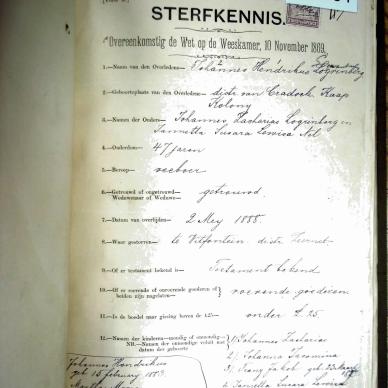 STERFKENNIS.
Overeenkomstig de Wet op de Weeskamer, 10 November 1869.
1.—Naam van den Overledene— Johannes Hendrikus Logrinberg
2.—Geboorteplaats van den Overledene— distr van Cradock Kaap
Kolony
3.—Namen der Ouders— Johannes Zacharias Logrinberg en
Jannetta Susara Lowisa Nel
4.—Ouderdom— 47 jaren
5.—Beroep— veeboer
6.—Getrouwd of ongetrouwd— getrouwd
Weduwenaar of Weduwe—
7.—Datum van overlijden— 2 Mey 1888.
8.—Waar gestorven— te Vitfontein distr Zeerust
9.—Of er testament bekend is— Testament bekend
10.—Of er roerende of onroerende goederen of roerende goederen
beiden zijn nagelaten—
11.—Is de boedel naar gissing boven de £25— onder £.25
12.—Namen der kinderen—mondig of onmondig— 1 Johannes Zacharias
NB.—Namen der onmondige voluit met
datum der geboorte
2. Johanna Jacomina
3. Frans Jacob geb 23
4. Jannetta Susara Lowisa
Johannes Hendrikus
geb 18 february 1883
Martha Maria